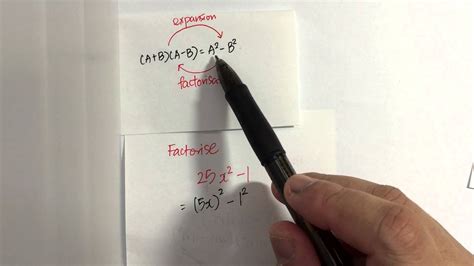 expansion
(A+B)(A-B) = A² - B²
Factorise
25x² - 1
= (5x)² - 1²